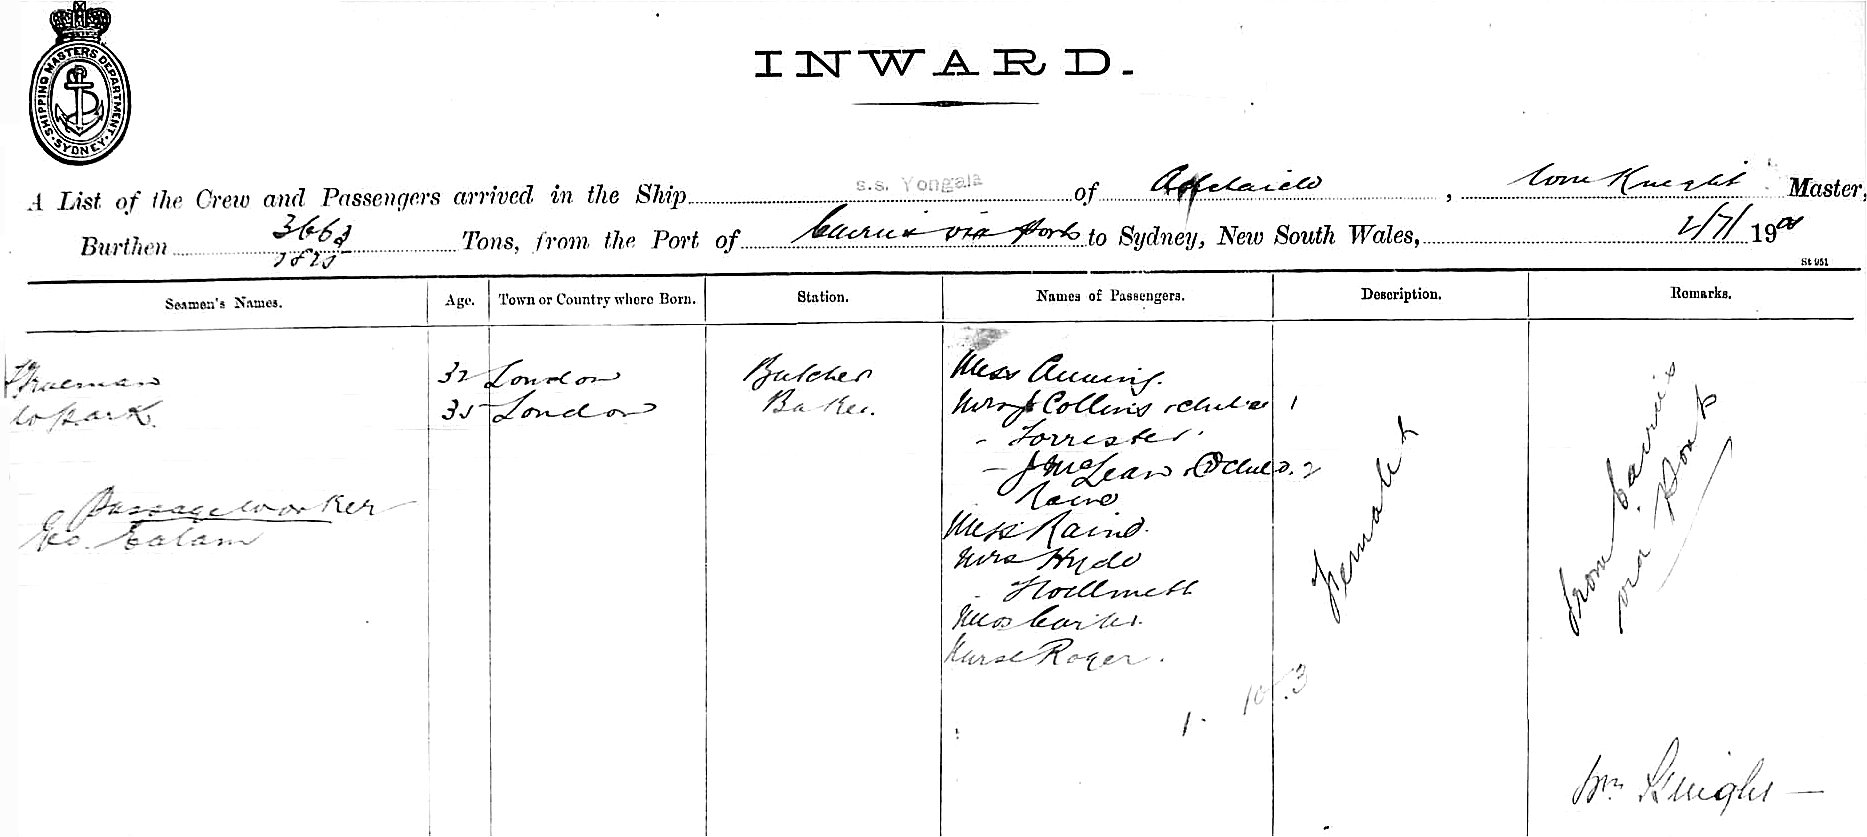 SHIPPING MASTERS DEPARTMENT
SYDNEY
INWARD.
A List of the Crew and Passengers arrived in the Ship s.s. Yongala of Adelaide, Wm Knight Master,
Burthen 3663 Tons, from the Port of Cairns via Ports to Sydney, New South Wales, 2/7/1908
1825
St 951
Seamen's Names. Age. Town or Country where Born. Station. Names of Passengers. Description. Remarks.
32 London Butcher Miss
35 London Baker. Mrs J Collins & child 1
- Forrester
- J McLean & 2 child. 2
Raine
Passage worker Miss Raine
Geo. Ealam Mrs Hyde
Miss Carter
Nurse Roger.
from Cairns
via Ports
1. 10.3
Wm Knight